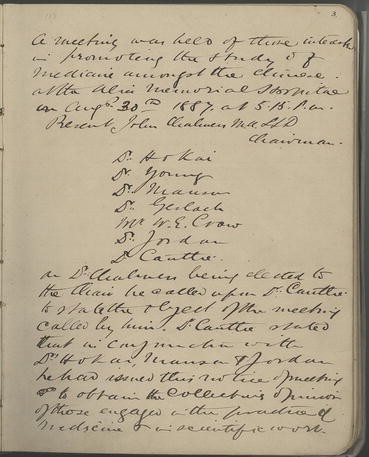 3.
A meeting was held of those interested
in promoting the study of
Medicine amongst the Chinese:
at the Alice Memorial Hospital
on Augt. 30th 1887. at 5.15. P.m.
Present, John Chalmers M.A. LLD
Chairman.
Dr. Ho Kai
Dr. Young
Dr. Manson
Dr. Gerlach
Mr. W. E. Crow
Dr. Jordan
Dr. Cantlie.
Dr. Chalmers being elected to
the Chair he called upon Dr. Cantlie
to state the object of the meeting
called by him. Dr. Cantlie stated
that in conjunction with
Drs. Ho Kai, Manson & Jordan
he had issued this notice of meeting
to obtain the collective opinion
of those engaged in the practice of
Medicine & in scientific work.